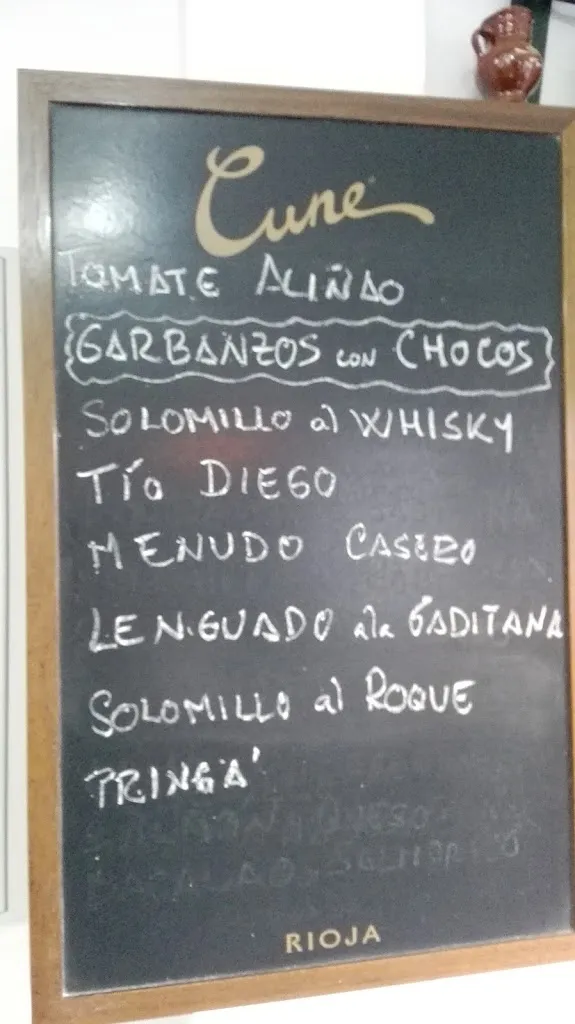 Cune
TOMATE ALIÑAO
GARBANZOS con CHOCOS
SOLOMILLO al WHISKY
Tío DIEGO
MENUDO CASERO
LENGUADO a la GADITANA
SOLOMILLO al ROQUE
PRINGÁ
RIOJA